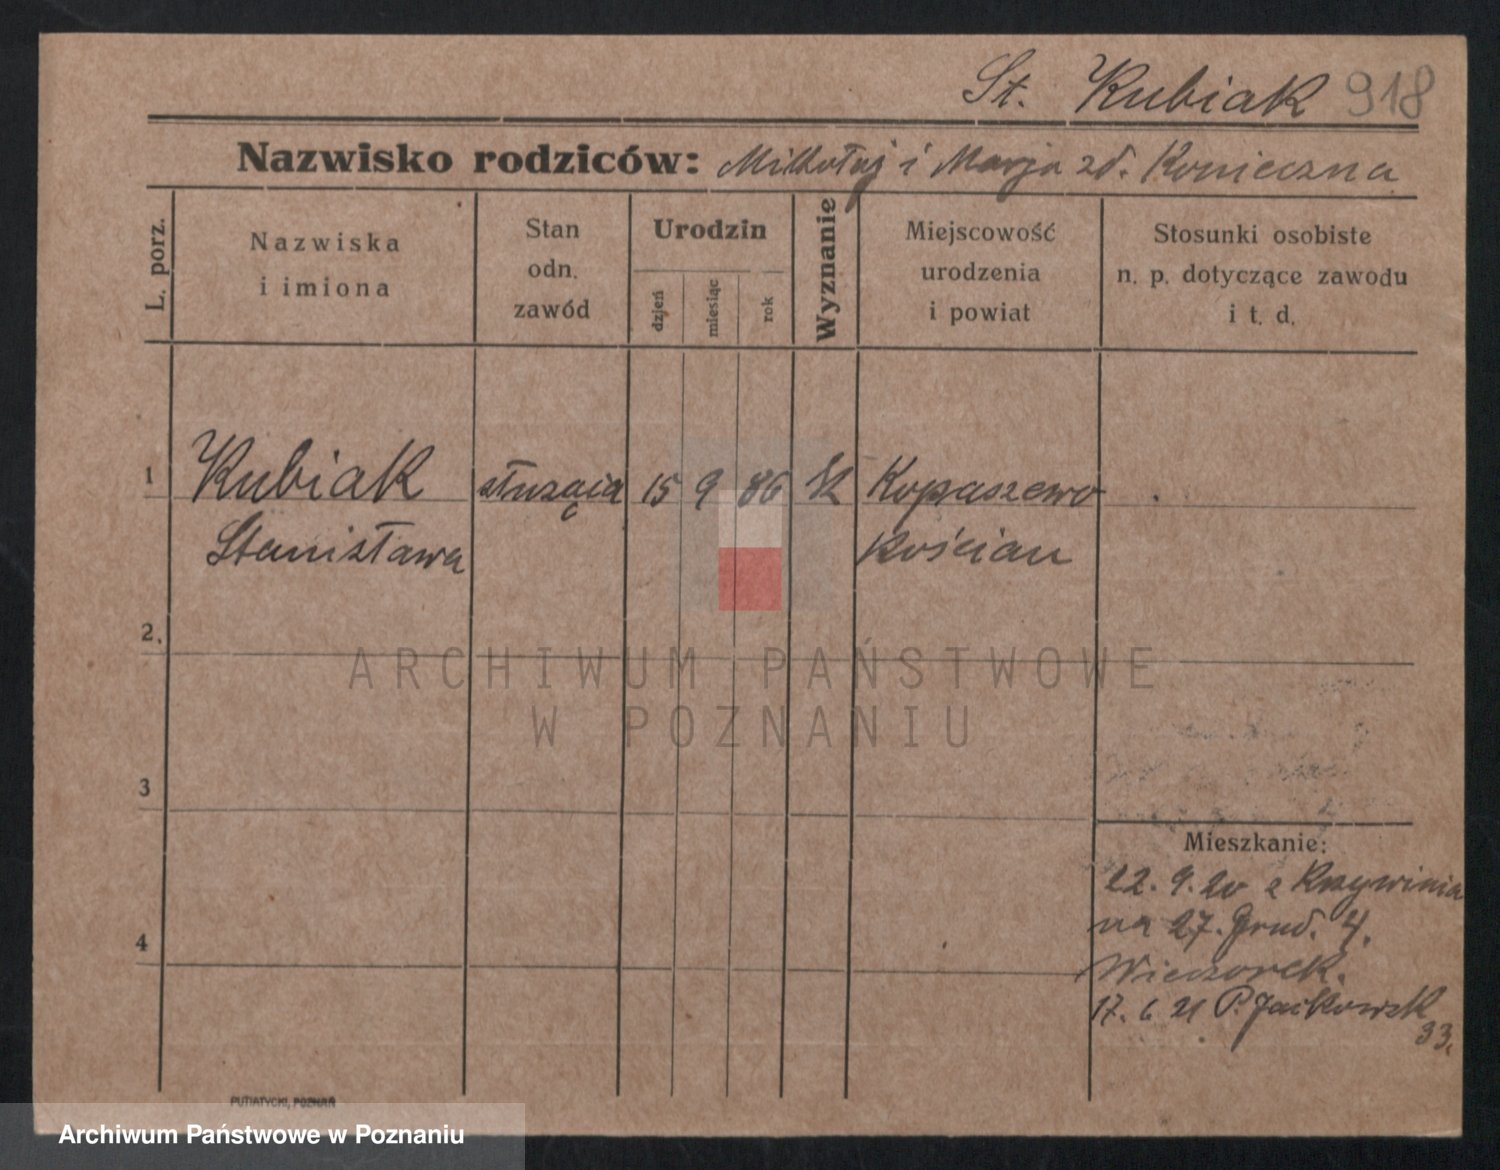 St. Kubiak 918
Nazwisko rodziców: Mikołaj i Marja zd. Konieczna
L. porz.
Nazwiska
i imiona
Stan
odn.
zawód
Urodzin
dzień
miesiąc
rok
Wyznanie
Miejscowość
urodzenia
i powiat
Stosunki osobiste
n. p. dotyczące zawodu
i t. d.
1 Kubiak służąca 15 9 86 Kopaszewo
Stanisława Kościan
2.
3
4
Mieszkanie:
22. 9. 20 z Krzywinia
na 27. Grud. 4.
Wieczorek.
17. 6 21 P. Jackowsk
33.
PUTIATYCKI, POZNAŃ
ARCHIWUM PAŃSTWOWE
W POZNANIU
Archiwum Państwowe w Poznaniu